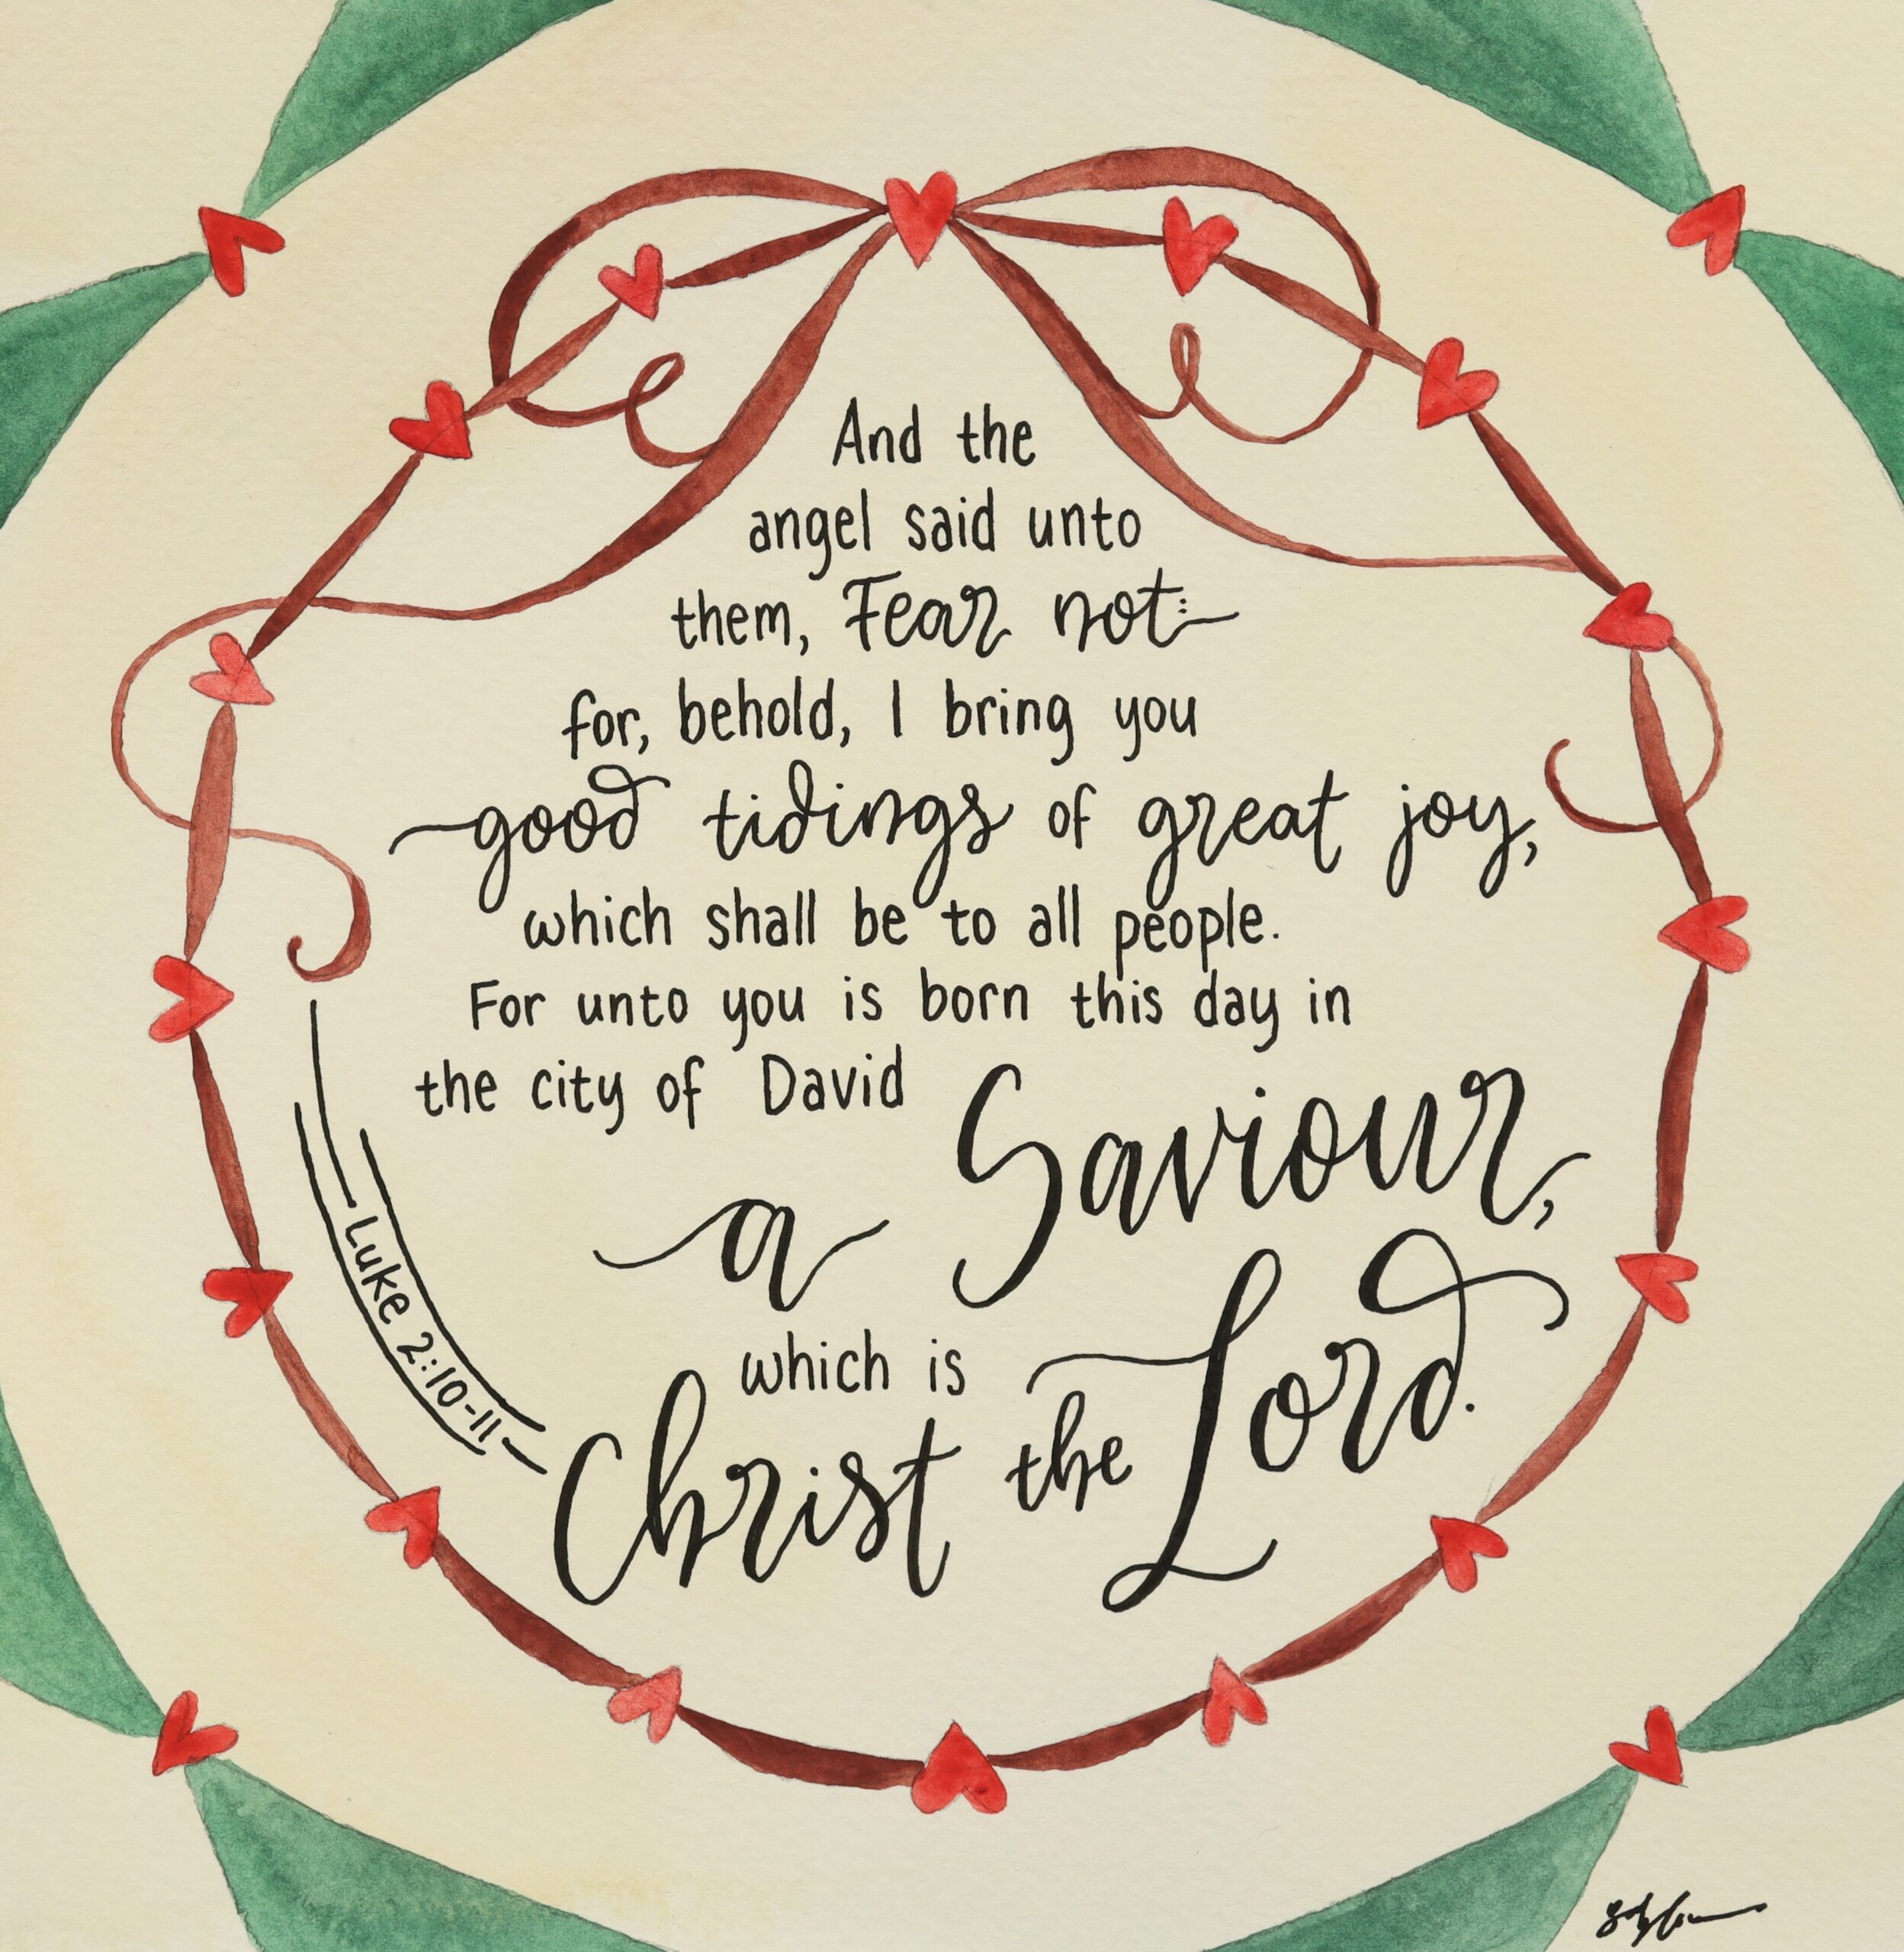 And the
angel said unto
them, Fear not:
for, behold, I bring you
good tidings of great joy,
which shall be to all people.
For unto you is born this day in
the city of David
a Saviour,
which is
Christ the Lord.
Luke 2:10-11